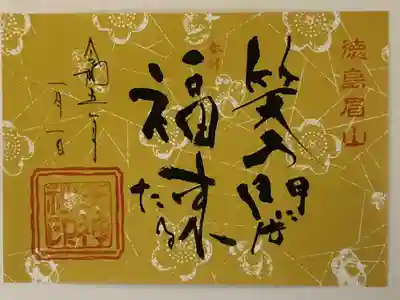 徳島眉山
奉拝
笑う門には
福来たる
令和五年
一月一日